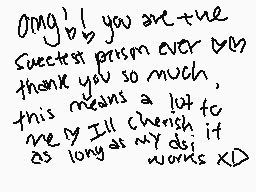 omg!! you are the
sweetest person ever ♡♡
thank you so much,
this means a lot to
me ♡ I'll cherish it
as long as my dsi
works XD